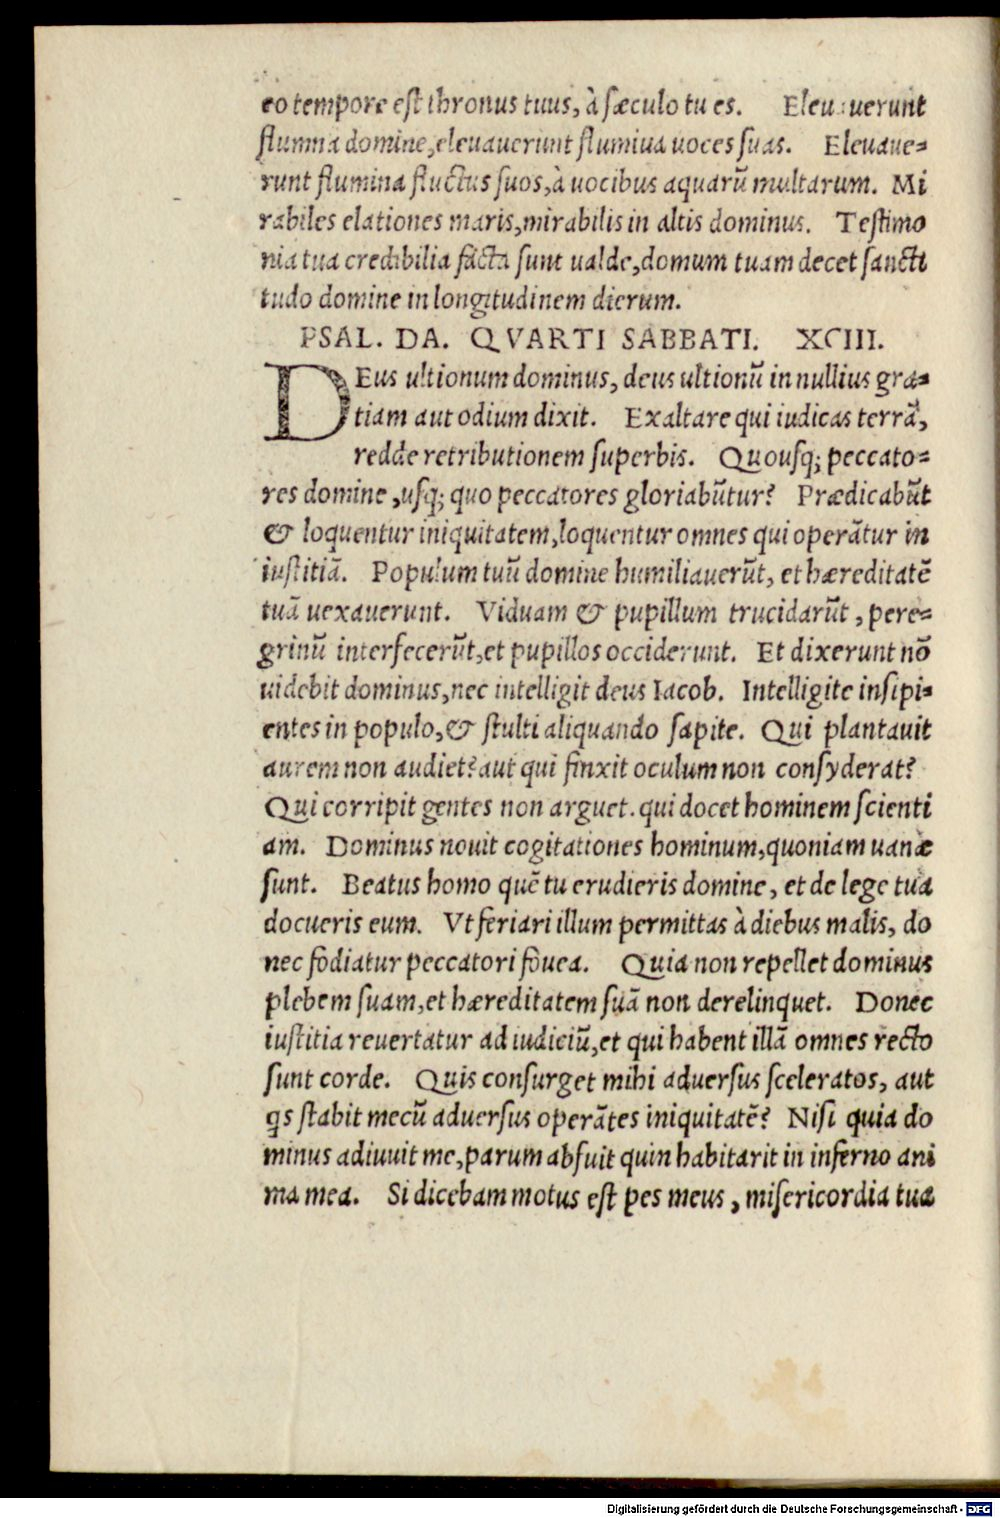 eo tempore est thronus tuus, à sæculo tu es. Eleuauerunt
flumina domine, eleuauerunt flumina uoces suas. Eleuaue=
runt flumina fluctus suos, à uocibus aquarũ multarum. Mi
rabiles elationes maris, mirabilis in altis dominus. Testimo
nia tua credibilia facta sunt ualde, domum tuam decet sancti
tudo domine in longitudinem dierum.
PSAL. DA. QVARTI SABBATI. XCIII.
DEus ultionum dominus, deus ultionũ in nullius gra=
tiam aut odium dixit. Exaltare qui iudicas terrã,
redde retributionem superbis. Quousq; peccato=
res domine, usq; quo peccatores gloriabũtur? Prædicabũt
& loquentur iniquitatem, loquentur omnes qui operãtur in
iustitiã. Populum tuũ domine humiliauerũt, et hæreditatẽ
tuã uexauerunt. Viduam & pupillum trucidarũt, pere=
grinũ interfecerũt, et pupillos occiderunt. Et dixerunt nõ
uidebit dominus, nec intelligit deus Iacob. Intelligite insipi=
entes in populo, & stulti aliquando sapite. Qui plantauit
aurem non audiet? aut qui finxit oculum non consyderat?
Qui corripit gentes non arguet. qui docet hominem scienti
am. Dominus nouit cogitationes hominum, quoniam uanæ
sunt. Beatus homo quẽ tu erudieris domine, et de lege tua
docueris eum. Vt feriari illum permittas à diebus malis, do
nec fodiatur peccatori fouea. Quia non repellet dominus
plebem suam, et hæreditatem suã non derelinquet. Donec
iustitia reuertatur ad iudiciũ, et qui habent illã omnes recto
sunt corde. Quis consurget mihi aduersus sceleratos, aut
qs stabit mecũ aduersus operãtes iniquitatẽ? Nisi quia do
minus adiuuit me, parum abfuit quin habitarit in inferno ani
ma mea. Si dicebam motus est pes meus, misericordia tua
Digitalisierung gefördert durch die Deutsche Forschungsgemeinschaft - DFG